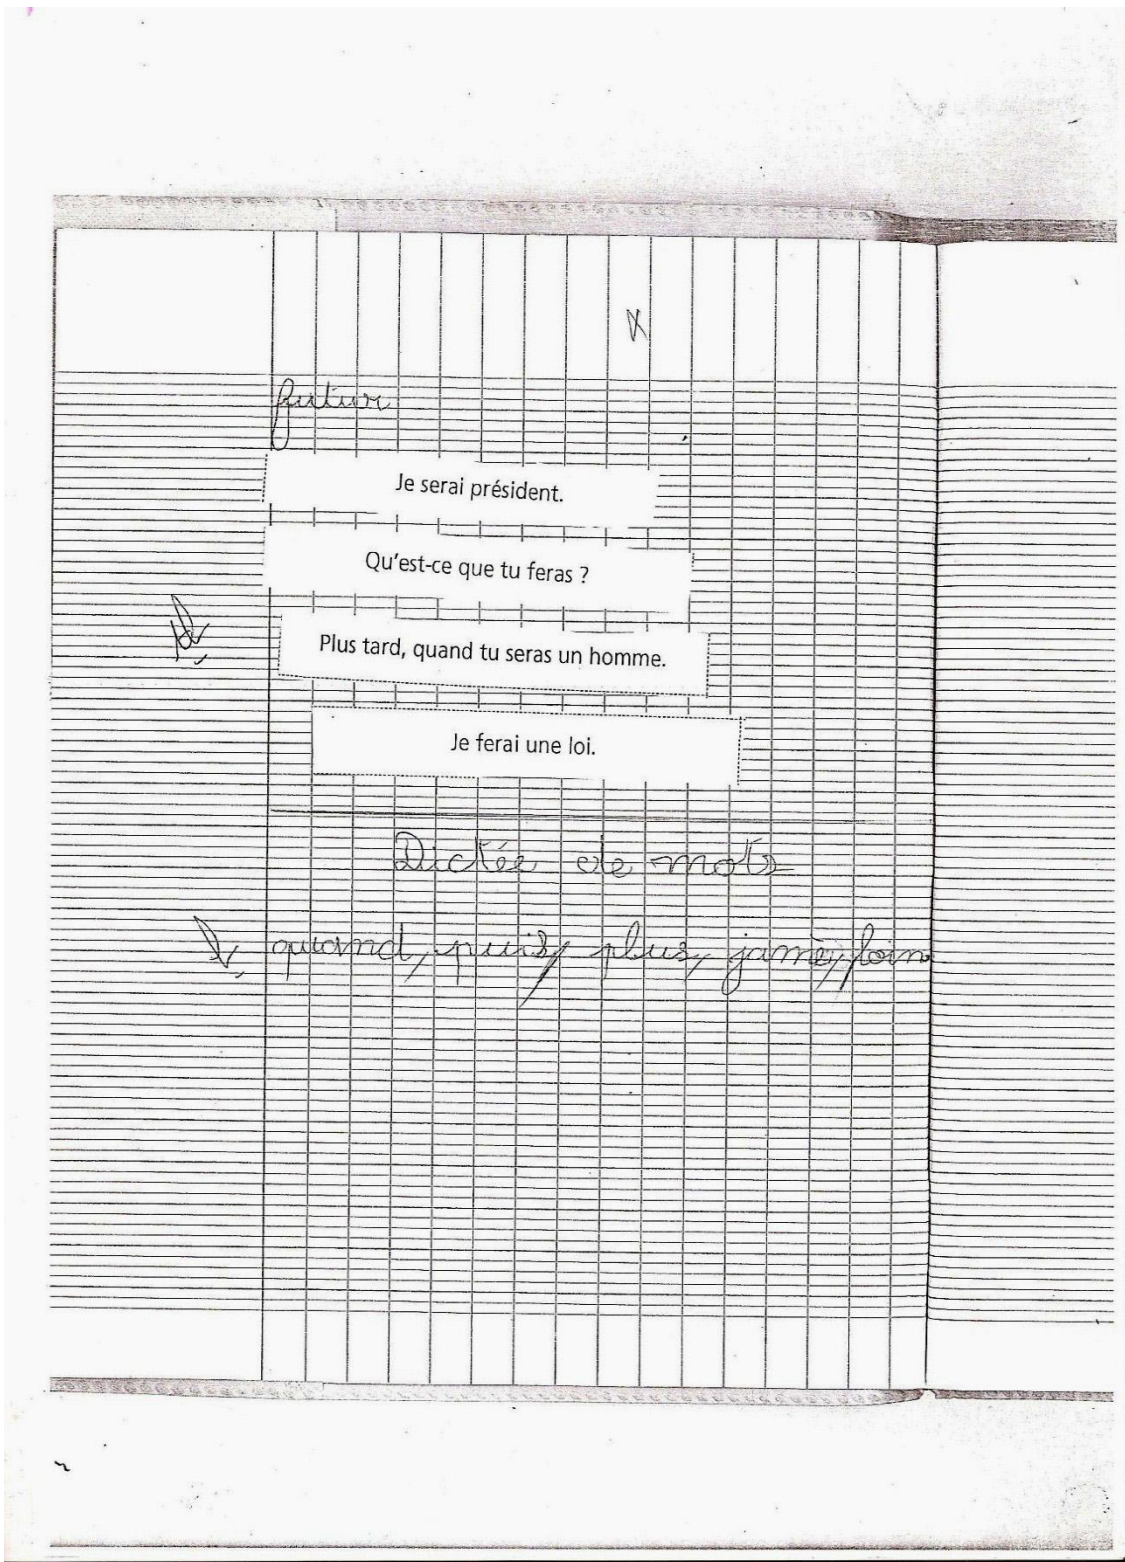 futur
Je serai président.
Qu'est-ce que tu feras ?
Plus tard, quand tu seras un homme.
Je ferai une loi.
Dictée de mots
quand, puis, plus, jamè, loin